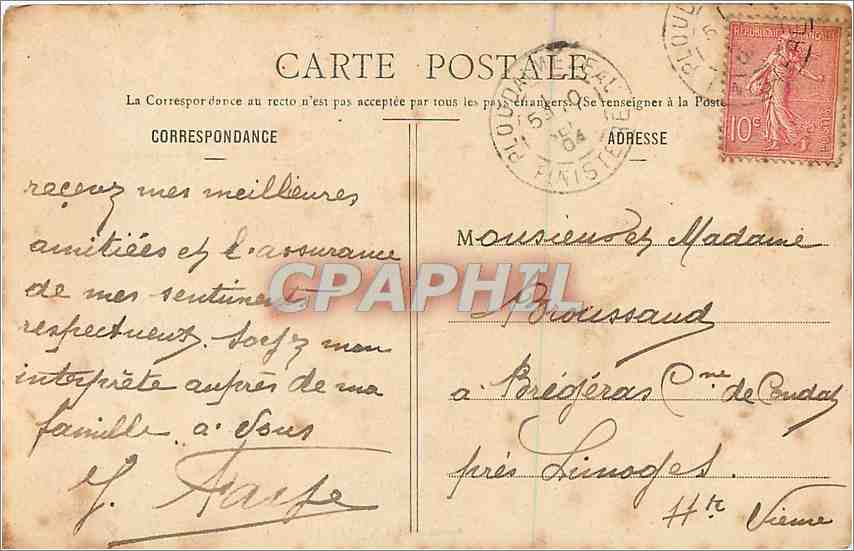 CARTE POSTALE
La Correspondance au recto n'est pas acceptée par tous les pays étrangers. (Se renseigner à la Poste
CORRESPONDANCE
ADRESSE
PLOUDALMEZEAU
5
04
FINISTERE
REPUBLIQUE FRANÇAISE
10c
POSTES
recevez mes meilleures
amitiées et l'assurance
de mes sentiments
respectueux. Soyez mon
interprète auprès de ma
famille à Vous
Monsieur et Madame
Broussaud
à Brégéras Cne de Condat
près Limoges.
Hte Vienne
CPAPHIL